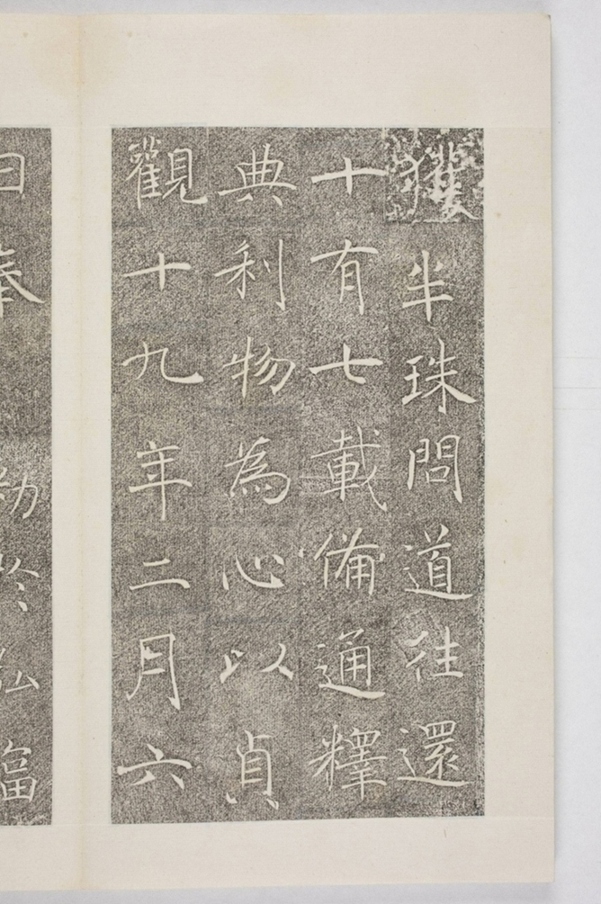 獲半珠問道往還
十有七載備通釋
典利物為心以貞
觀十九年二月六
日奉勅於弘福